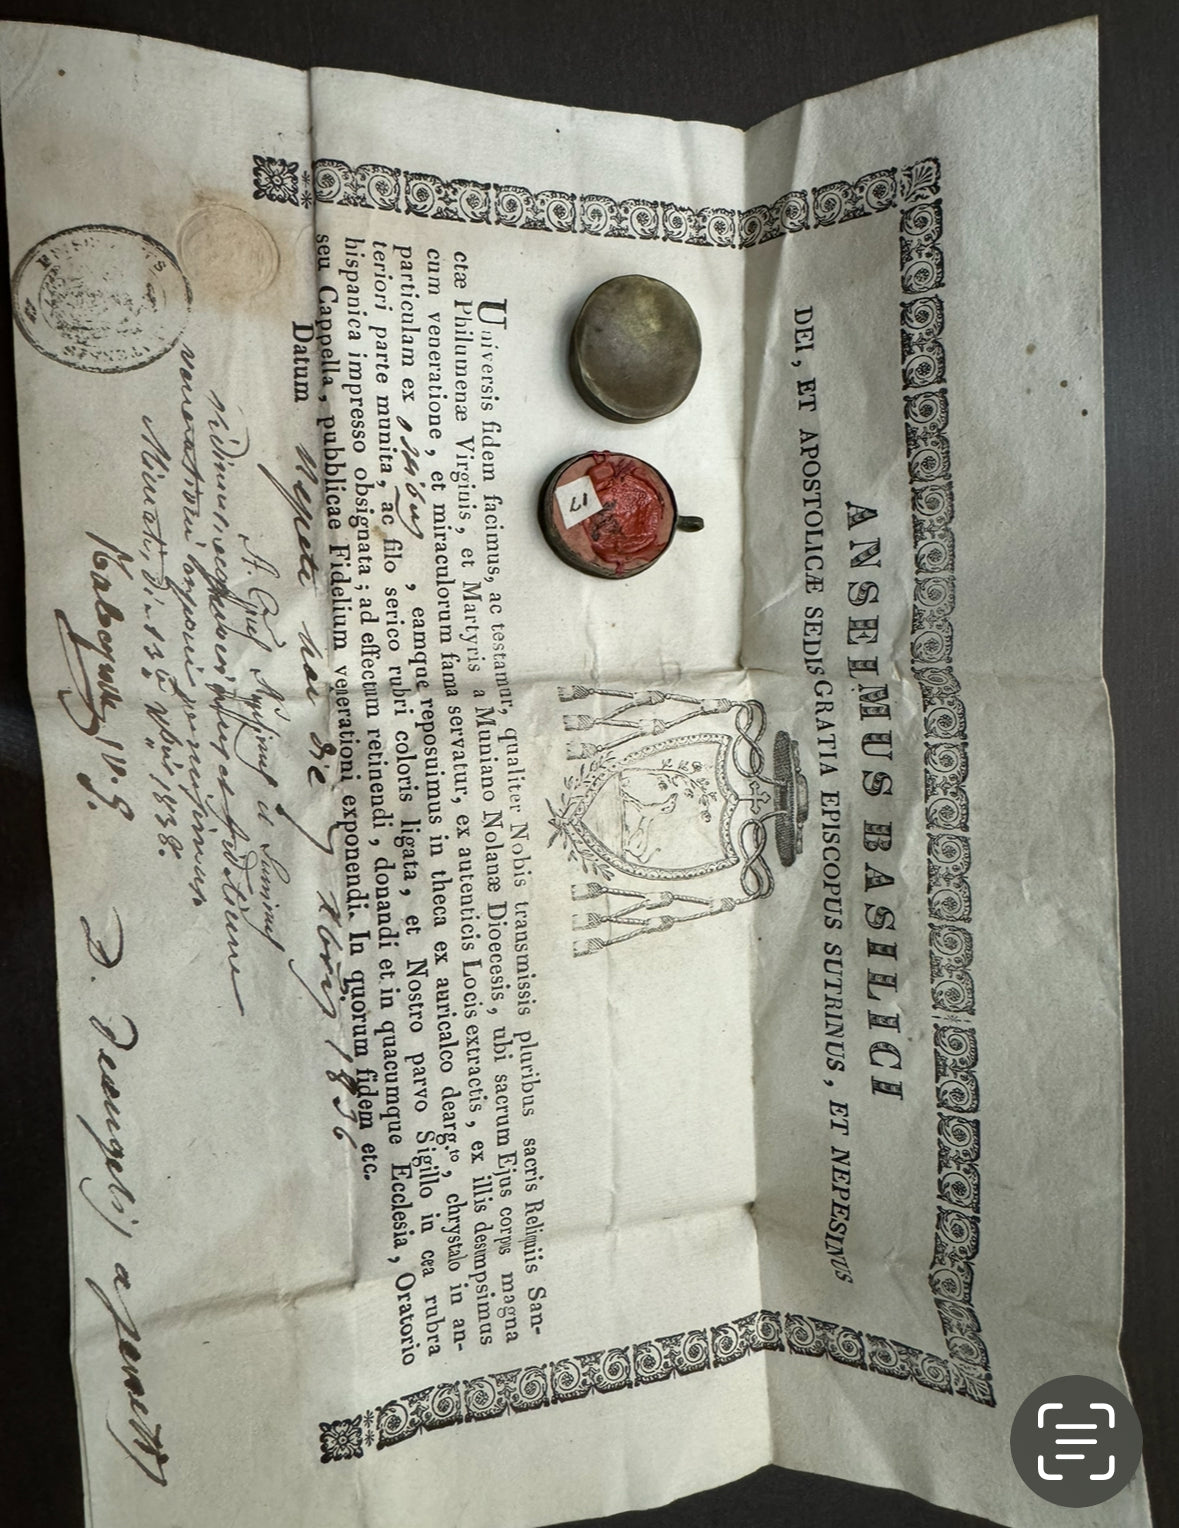 ANSELMUS BASILICI
DEI, ET APOSTOLICÆ SEDIS GRATIA EPISCOPUS SUTRINUS, ET NEPESINUS
Universis fidem facimus, ac testamur, qualiter Nobis transmissis pluribus sacris Reliquiis San-
ctæ Philumenæ Virginis, et Martyris a Muniano Nolanæ Dioecesis, ubi sacrum Ejus corpus magna
cum veneratione, et miraculorum fama servatur, ex autenticis Locis extractis, ex illis desumpsimus
particulam ex , eamque reposuimus in theca ex auricalco dearg.to, chrystalo in an-
teriori parte munita, ac filo serico rubri coloris ligata, et Nostro parvo Sigillo in cera rubra
hispanica impresso obsignata; ad effectum retinendi, donandi et in quacumque Ecclesia, Oratorio
seu Cappella, pubblicae Fidelium venerationi exponendi. In quorum fidem etc.
Datum Nepete hac die 1836
17
1838.
D. Deangelis a